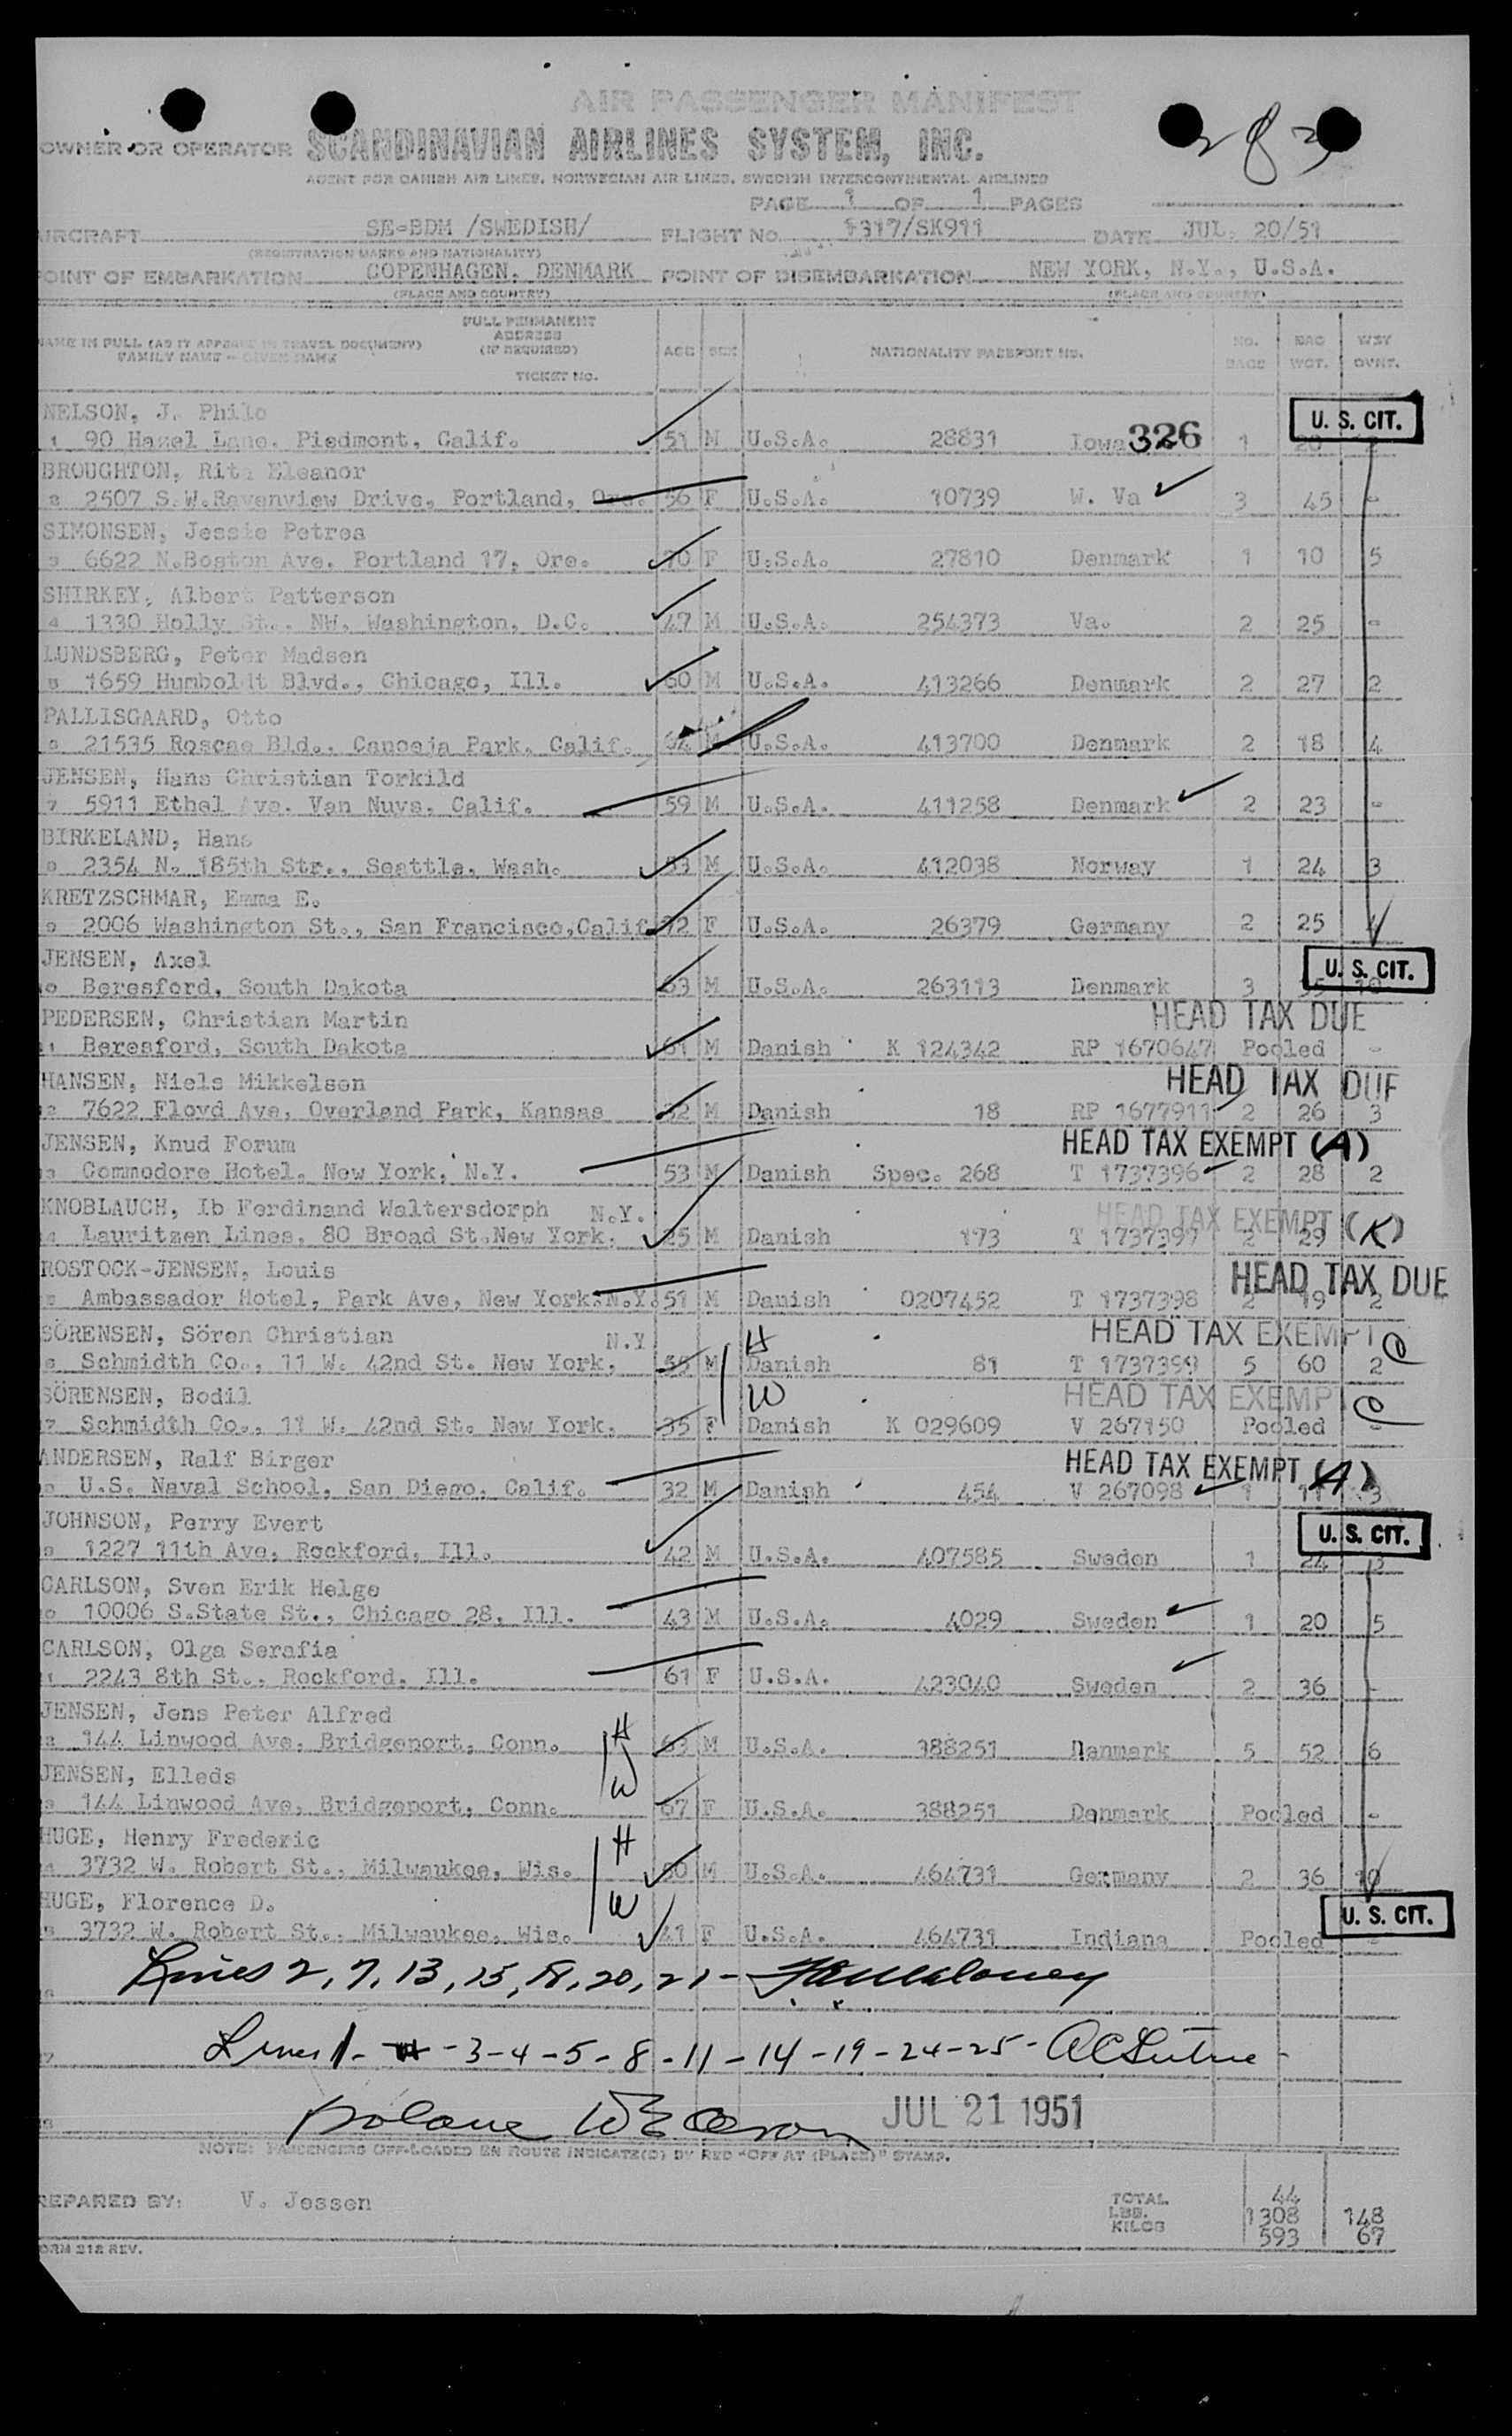 AIR PASSENGER MANIFEST
OWNER OR OPERATOR SCANDINAVIAN AIRLINES SYSTEM, INC.
AGENT FOR DANISH AIR LINES, NORWEGIAN AIR LINES, SWEDISH INTERCONTINENTAL AIRLINES
PAGE 1 OF 1 PAGES
IRCRAFT SE-BDM /SWEDISH/ FLIGHT NO. 1317/SK911 DATE JUL. 20/51
(REGISTRATION MARKS AND NATIONALITY)
OINT OF EMBARKATION COPENHAGEN, DENMARK POINT OF DISEMBARKATION NEW YORK, N.Y., U.S.A.
(PLACE AND COUNTRY) (PLACE AND COUNTRY)
NAME IN FULL (AS IT APPEARS IN TRAVEL DOCUMENT) FAMILY NAME - GIVEN NAME
FULL PERMANENT ADDRESS (IF REQUIRED) TICKET NO.
AGE SEX NATIONALITY PASSPORT NO. NO. BAGS BAG WGT.
NELSON, J. Philo U. S. CIT.
1 90 Hazel Lane. Piedmont, Calif. 51 M U.S.A. 28831 Iowa 326 1
BROUGHTON, Rita Eleanor
2 2507 S.W.Ravenview Drive, Portland, Ore. 56 F U.S.A. 10739 W. Va 3 45 -
SIMONSEN, Jessie Petrea
3 6622 N.Boston Ave. Portland 17, Ore. 70 F U.S.A. 27810 Denmark 1 10 5
SHIRKEY, Albert Patterson
4 1330 Holly St.. NW. Washington, D.C. 47 M U.S.A. 254373 Va. 2 25 -
LUNDSBERG, Peter Madsen
5 1659 Humboldt Blvd., Chicago, Ill. 60 M U.S.A. 413266 Denmark 2 27 2
PALLISGAARD, Otto
6 21535 Roscae Bld.. Canoeja Park. Calif. M U.S.A. 413700 Denmark 2 18 4
JENSEN, Hans Christian Torkild
7 5911 Ethel Ave. Van Nuys. Calif. 59 M U.S.A. 411258 Denmark 2 23 -
BIRKELAND, Hans
8 2354 N. 185th Str., Seattle, Wash. 53 M U.S.A. 412038 Norway 1 24 3
KRETZSCHMAR, Emma E.
9 2006 Washington St., San Francisco,Calif. 72 F U.S.A. 26379 Germany 2 25
JENSEN, Axel U. S. CIT.
0 Beresford, South Dakota 63 M U.S.A. 263113 Denmark 3 35 10
PEDERSEN, Christian Martin HEAD TAX DUE
1 Beresford, South Dakota 61 M Danish K 124342 RP 1670647 Pooled -
HANSEN, Niels Mikkelsen HEAD TAX DUE
2 7622 Floyd Ave, Overland Park, Kansas M Danish 18 RP 1677911 2 26 3
JENSEN, Knud Forum HEAD TAX EXEMPT (A)
3 Commodore Hotel. New York, N.Y. 53 M Danish Spec. 268 T 1737396 2 28 2
KNOBLAUCH, Ib Ferdinand Waltersdorph N.Y. HEAD TAX EXEMPT (K)
4 Lauritzen Lines. 80 Broad St.New York. 25 M Danish 173 T 1737397 2 29
ROSTOCK-JENSEN, Louis HEAD TAX DUE
5 Ambassador Hotel, Park Ave, New York.N.Y. 51 M Danish 0207452 T 1737398 2 19 2
SÖRENSEN, Sören Christian N.Y H HEAD TAX EXEMPT
6 Schmidth Co., 11 W. 42nd St. New York. M Danish 81 T 1737399 5 60 2
SÖRENSEN, Bodil W HEAD TAX EXEMPT
7 Schmidth Co., 11 W. 42nd St. New York. 35 F Danish K 029609 V 267150 Pooled -
ANDERSEN, Ralf Birger HEAD TAX EXEMPT (A)
8 U.S. Naval School, San Diego, Calif. 32 M Danish 454 V 267098 1 11 3
JOHNSON, Perry Evert U. S. CIT.
9 1227 11th Ave, Rockford, Ill. 42 M U.S.A. 407585 Sweden 1 24 3
CARLSON, Sven Erik Helge
0 10006 S.State St., Chicago 28, Ill. 43 M U.S.A. 4029 Sweden 1 20 5
CARLSON, Olga Serafia
1 2243 8th St., Rockford, Ill. 61 F U.S.A. 423040 Sweden 2 36 -
JENSEN, Jens Peter Alfred H
2 144 Linwood Ave. Bridgeport, Conn. M U.S.A. 388251 Danmark 5 52 6
JENSEN, Elleds W
3 144 Linwood Ave, Bridgeport, Conn. 67 F U.S.A. 388251 Denmark Pooled -
HUGE, Henry Frederic H
4 3732 W. Robert St., Milwaukee, Wis. M U.S.A. 464731 Germany 2 36 10
HUGE, Florence D. W U. S. CIT.
5 3732 W. Robert St., Milwaukee, Wis. 41 F U.S.A. 464731 Indiana Pooled -
Lines 2, 7, 13, 15, 18, 20, 21 -
Lines 1 - 3 - 4 - 5 - 8 - 11 - 14 - 19 - 24 - 25 -
JUL 21 1951
NOTE: PASSENGERS OFF-LOADED EN ROUTE INDICATE(D) BY RED "OFF AT (PLACE)" STAMP.
REPARED BY: V. Jessen
TOTAL 44
LBS. 1308 148
KILOS 593 67
ORM 218 REV.